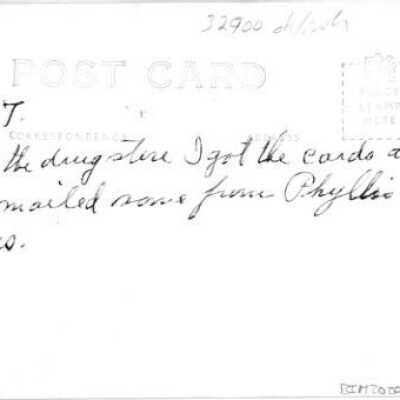 32900
POST CARD
T.
CORRESPONDENCE ADDRESS
PLACE
STAMP
HERE
the drug store I got the cards a
mailed some from Phyllis
o.